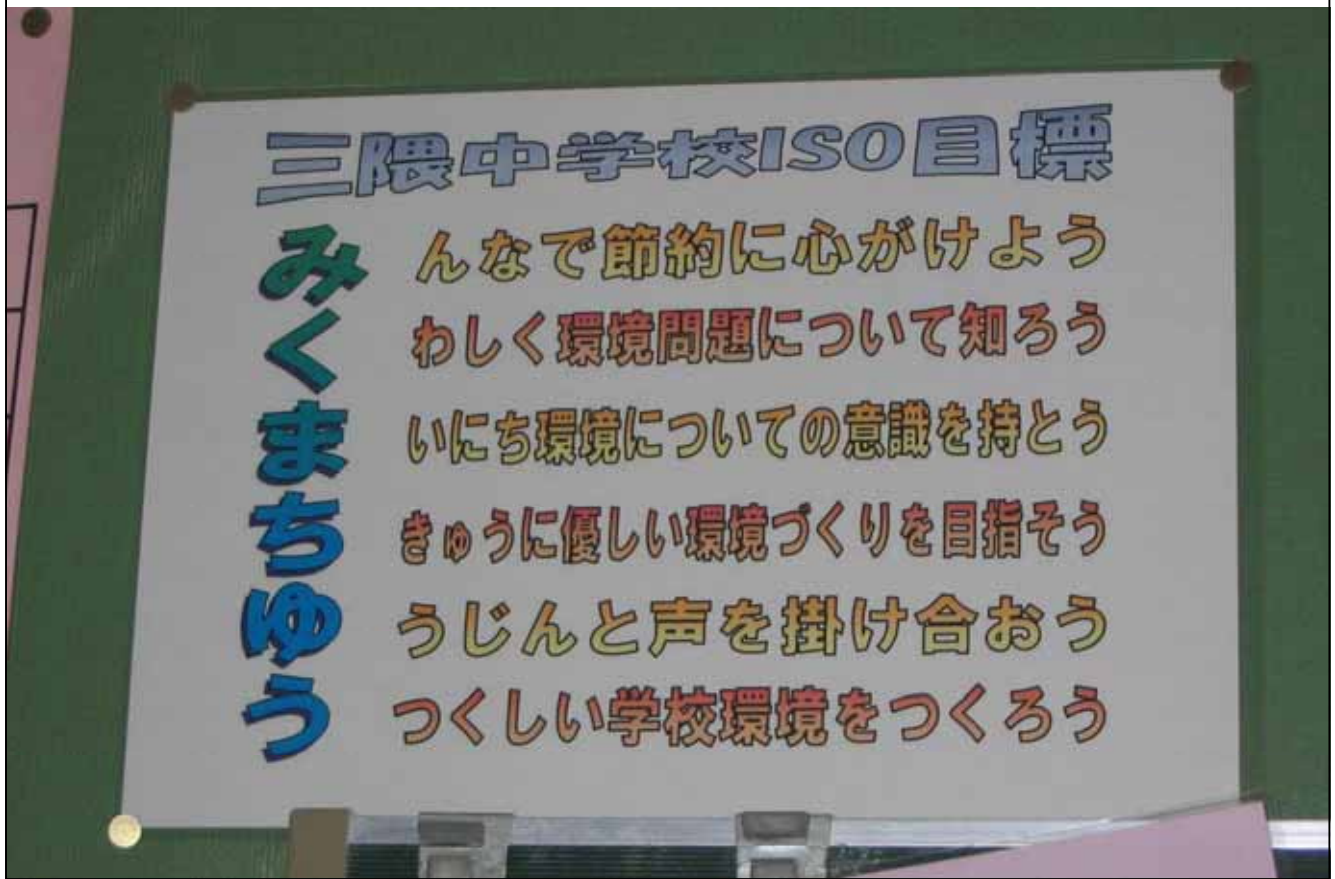 三隈中学校ISO目標
みんなで節約に心がけよう
くわしく環境問題について知ろう
まいにち環境についての意識を持とう
ちきゅうに優しい環境づくりを目指そう
ゆうじんと声を掛け合おう
うつくしい学校環境をつくろう